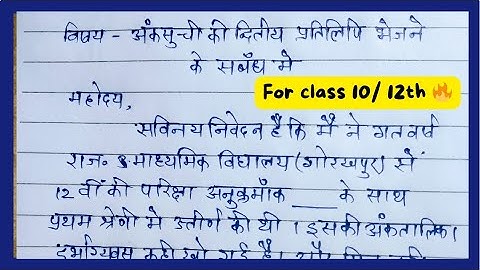 विषय - अंकसुची की द्वितीय प्रतिलिपि भेजने
के सबंध मे
For class 10/ 12th 🔥
महोदय,
सविनय निवेदन है कि मै ने गतवर्ष
राज० उ माध्यमिक विद्यालय (गोरखपुर) से
12 वीं की परिक्षा अनुक्रमाँक ___ के साथ
प्रथम श्रेणी मे उतीर्ण की थी । इसकी अंकतालिका
दुर्भाग्यवस कही खो गई है।